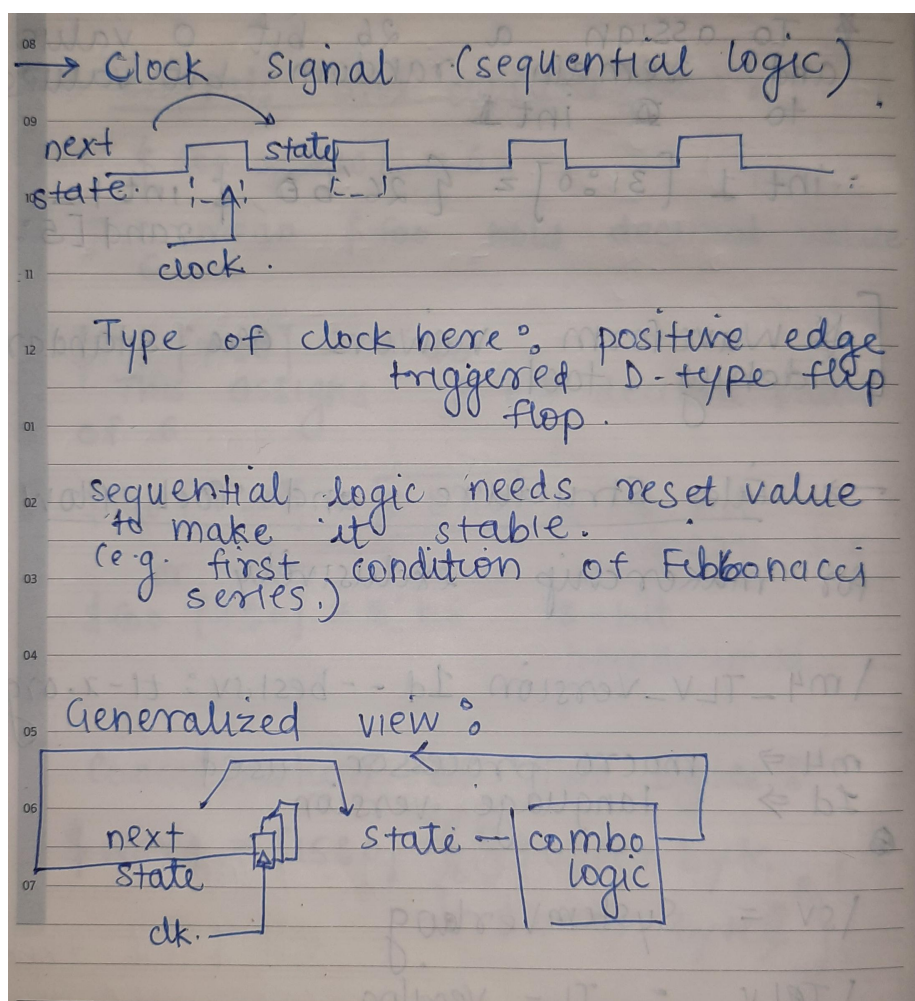 08
→ Clock signal (sequential logic)
09
next state
10 state.
clock.
11
12 Type of clock here: positive edge
triggered D-type flip
01 flop.
02 sequential logic needs reset value
to make it stable.
(e.g. first condition of Fibbonacci
03 series.)
04
Generalized view:
05
06
next state combo
state logic
07
clk.